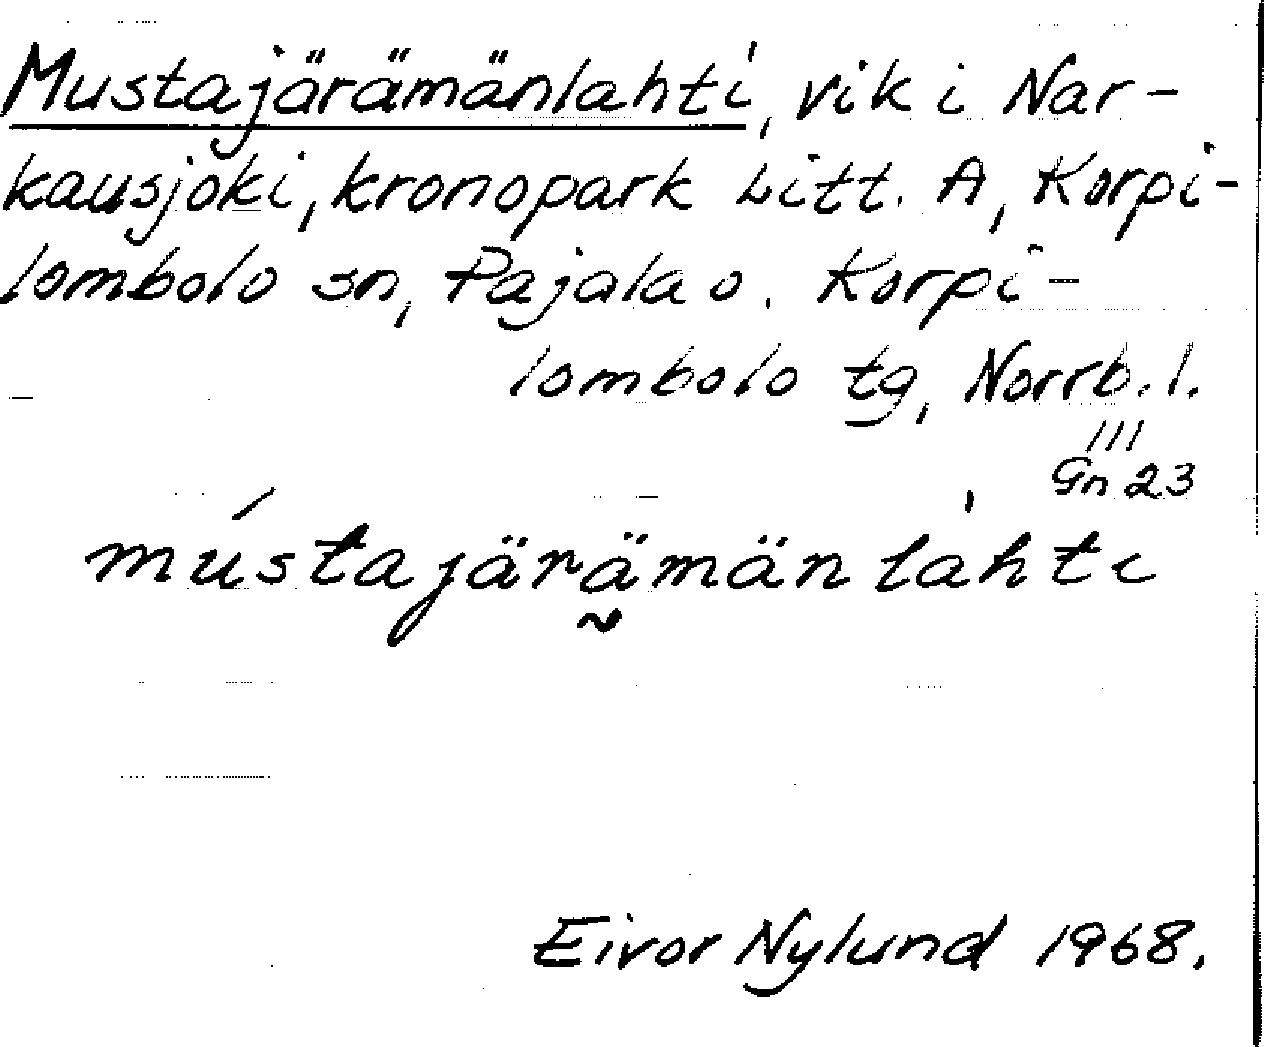 Mustajärämänlahti, vik i Nar-
kausjoki, kronopark Litt. A, Korpi-
lombolo sn, Pajala o. Korpi-
lombolo tg, Norrb. l.
III
Gn 23
mústajärä̰män làhti
Eivor Nylund 1968.